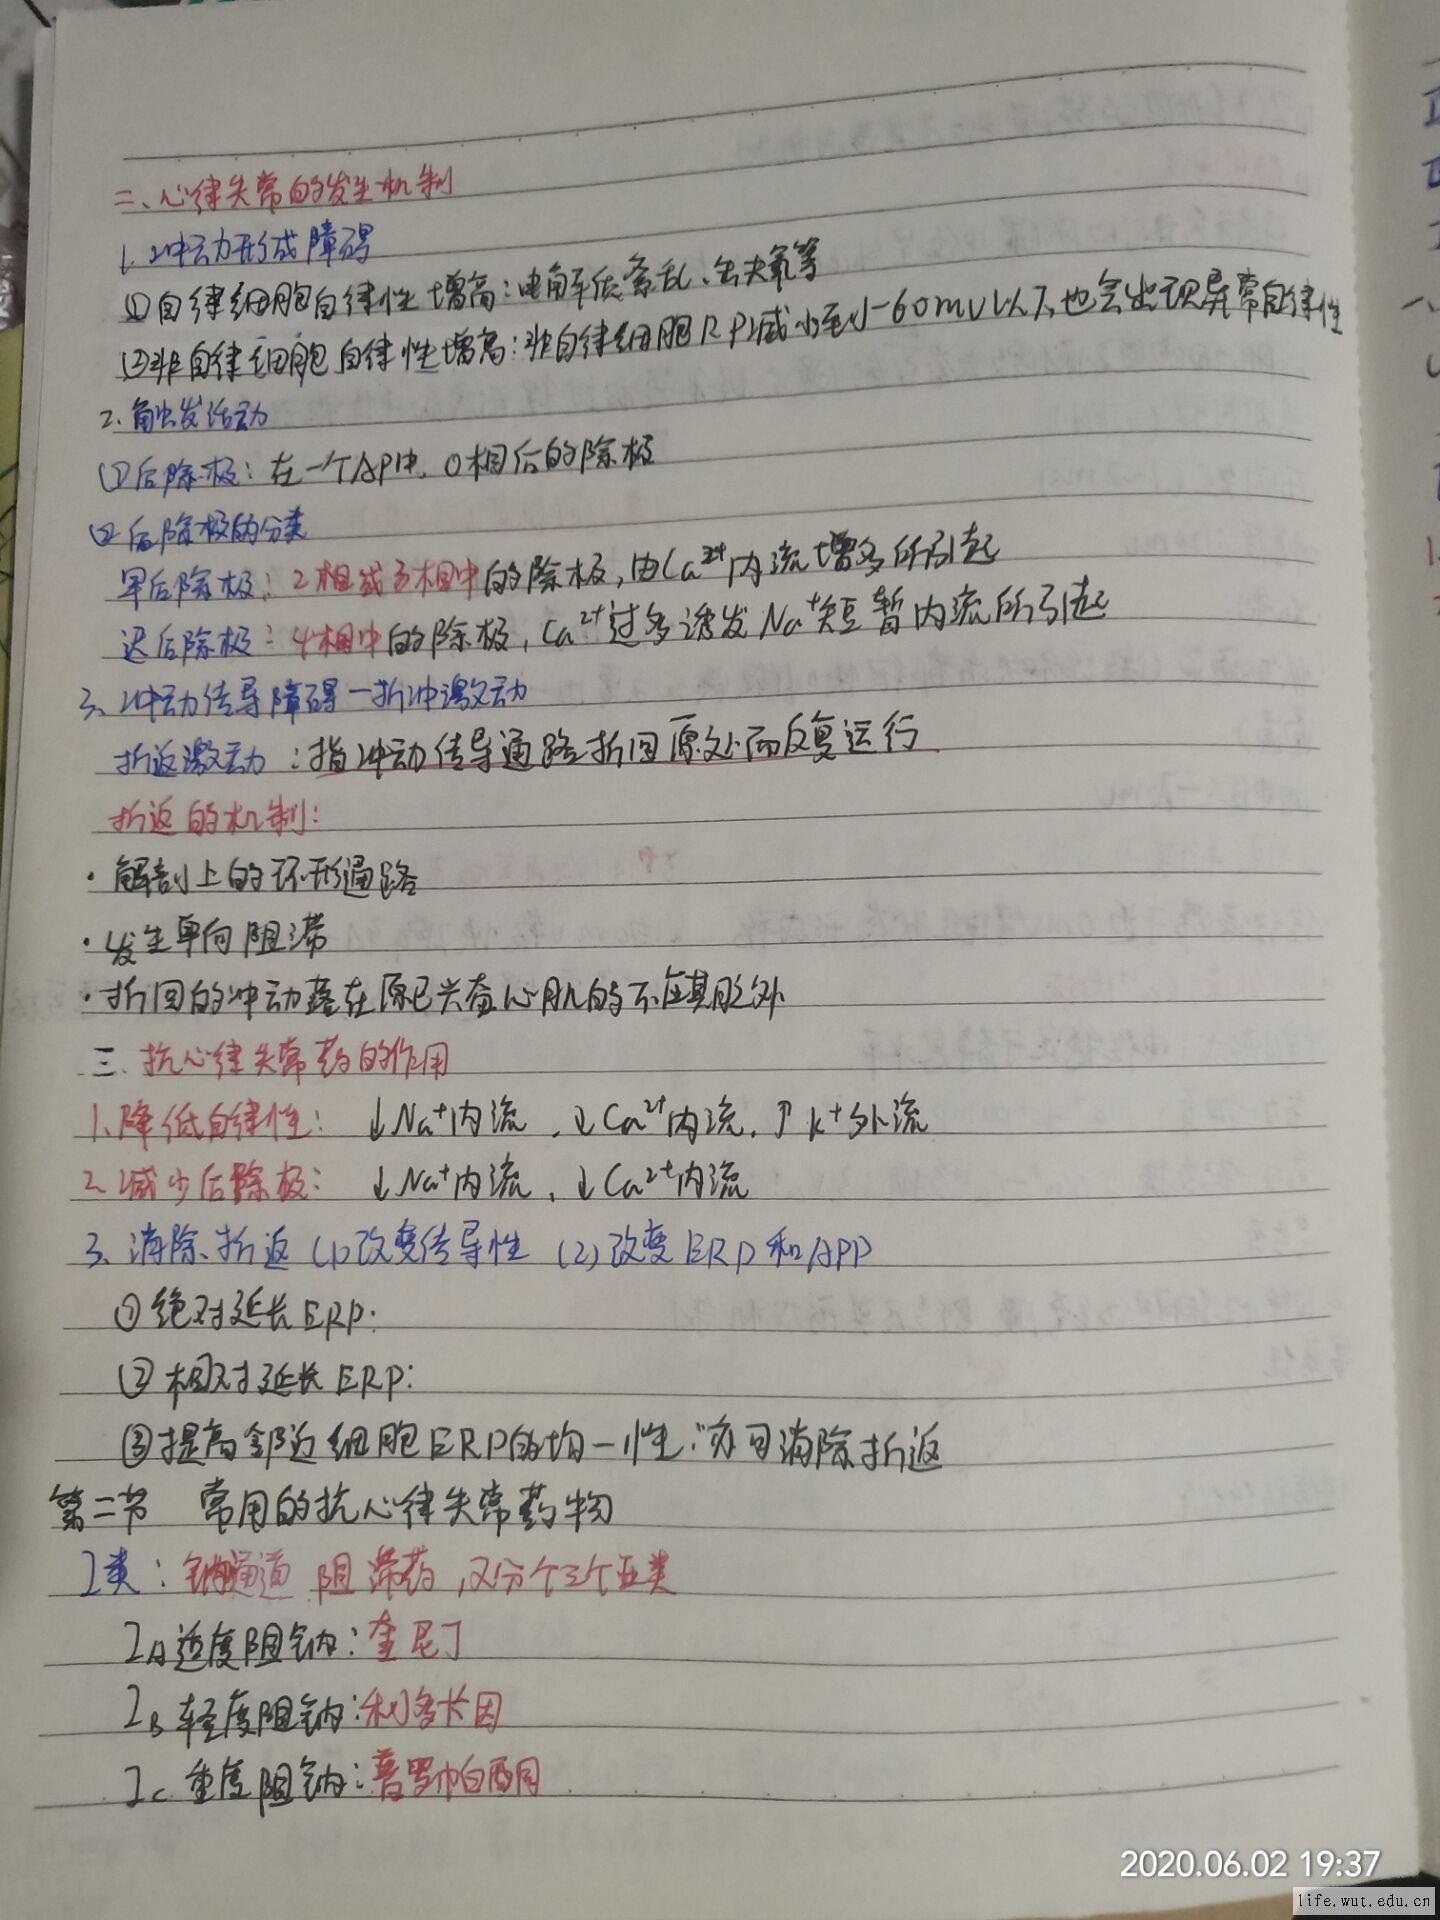 二、心律失常的发生机制
1.冲动形成障碍
①自律细胞自律性增高:电解质紊乱、缺氧等
②非自律细胞自律性增高:非自律细胞RP减小至-60mV以下,也会出现异常自律性
2.触发活动
①后除极:在一个AP中,0相后的除极
②后除极的分类
早后除极:2相或3相中的除极,由Ca²⁺内流增多所引起
迟后除极:4相中的除极,Ca²⁺过多诱发Na⁺短暂内流所引起
3、冲动传导障碍—折冲激动
折返激动:指冲动传导通路折回原处而反复运行
折返的机制:
·解剖上的环形通路
·发生单向阻滞
·折回的冲动落在原已兴奋心肌的不应期之外
三.抗心律失常药的作用
1.降低自律性: ↓Na⁺内流、↓Ca²⁺内流、↑K⁺外流
2.减少后除极: ↓Na⁺内流、↓Ca²⁺内流
3、消除折返 (1)改变传导性 (2)改变ERP和APD
①绝对延长ERP:
②相对延长ERP:
③提高邻近细胞ERP的均一性,亦可消除折返
第二节 常用的抗心律失常药物
I类:钠通道阻滞药,又分个三个亚类
IA适度阻钠:奎尼丁
IB轻度阻钠:利多卡因
Ic重度阻钠:普罗帕酮
2020.06.02 19:37
life.wut.edu.cn